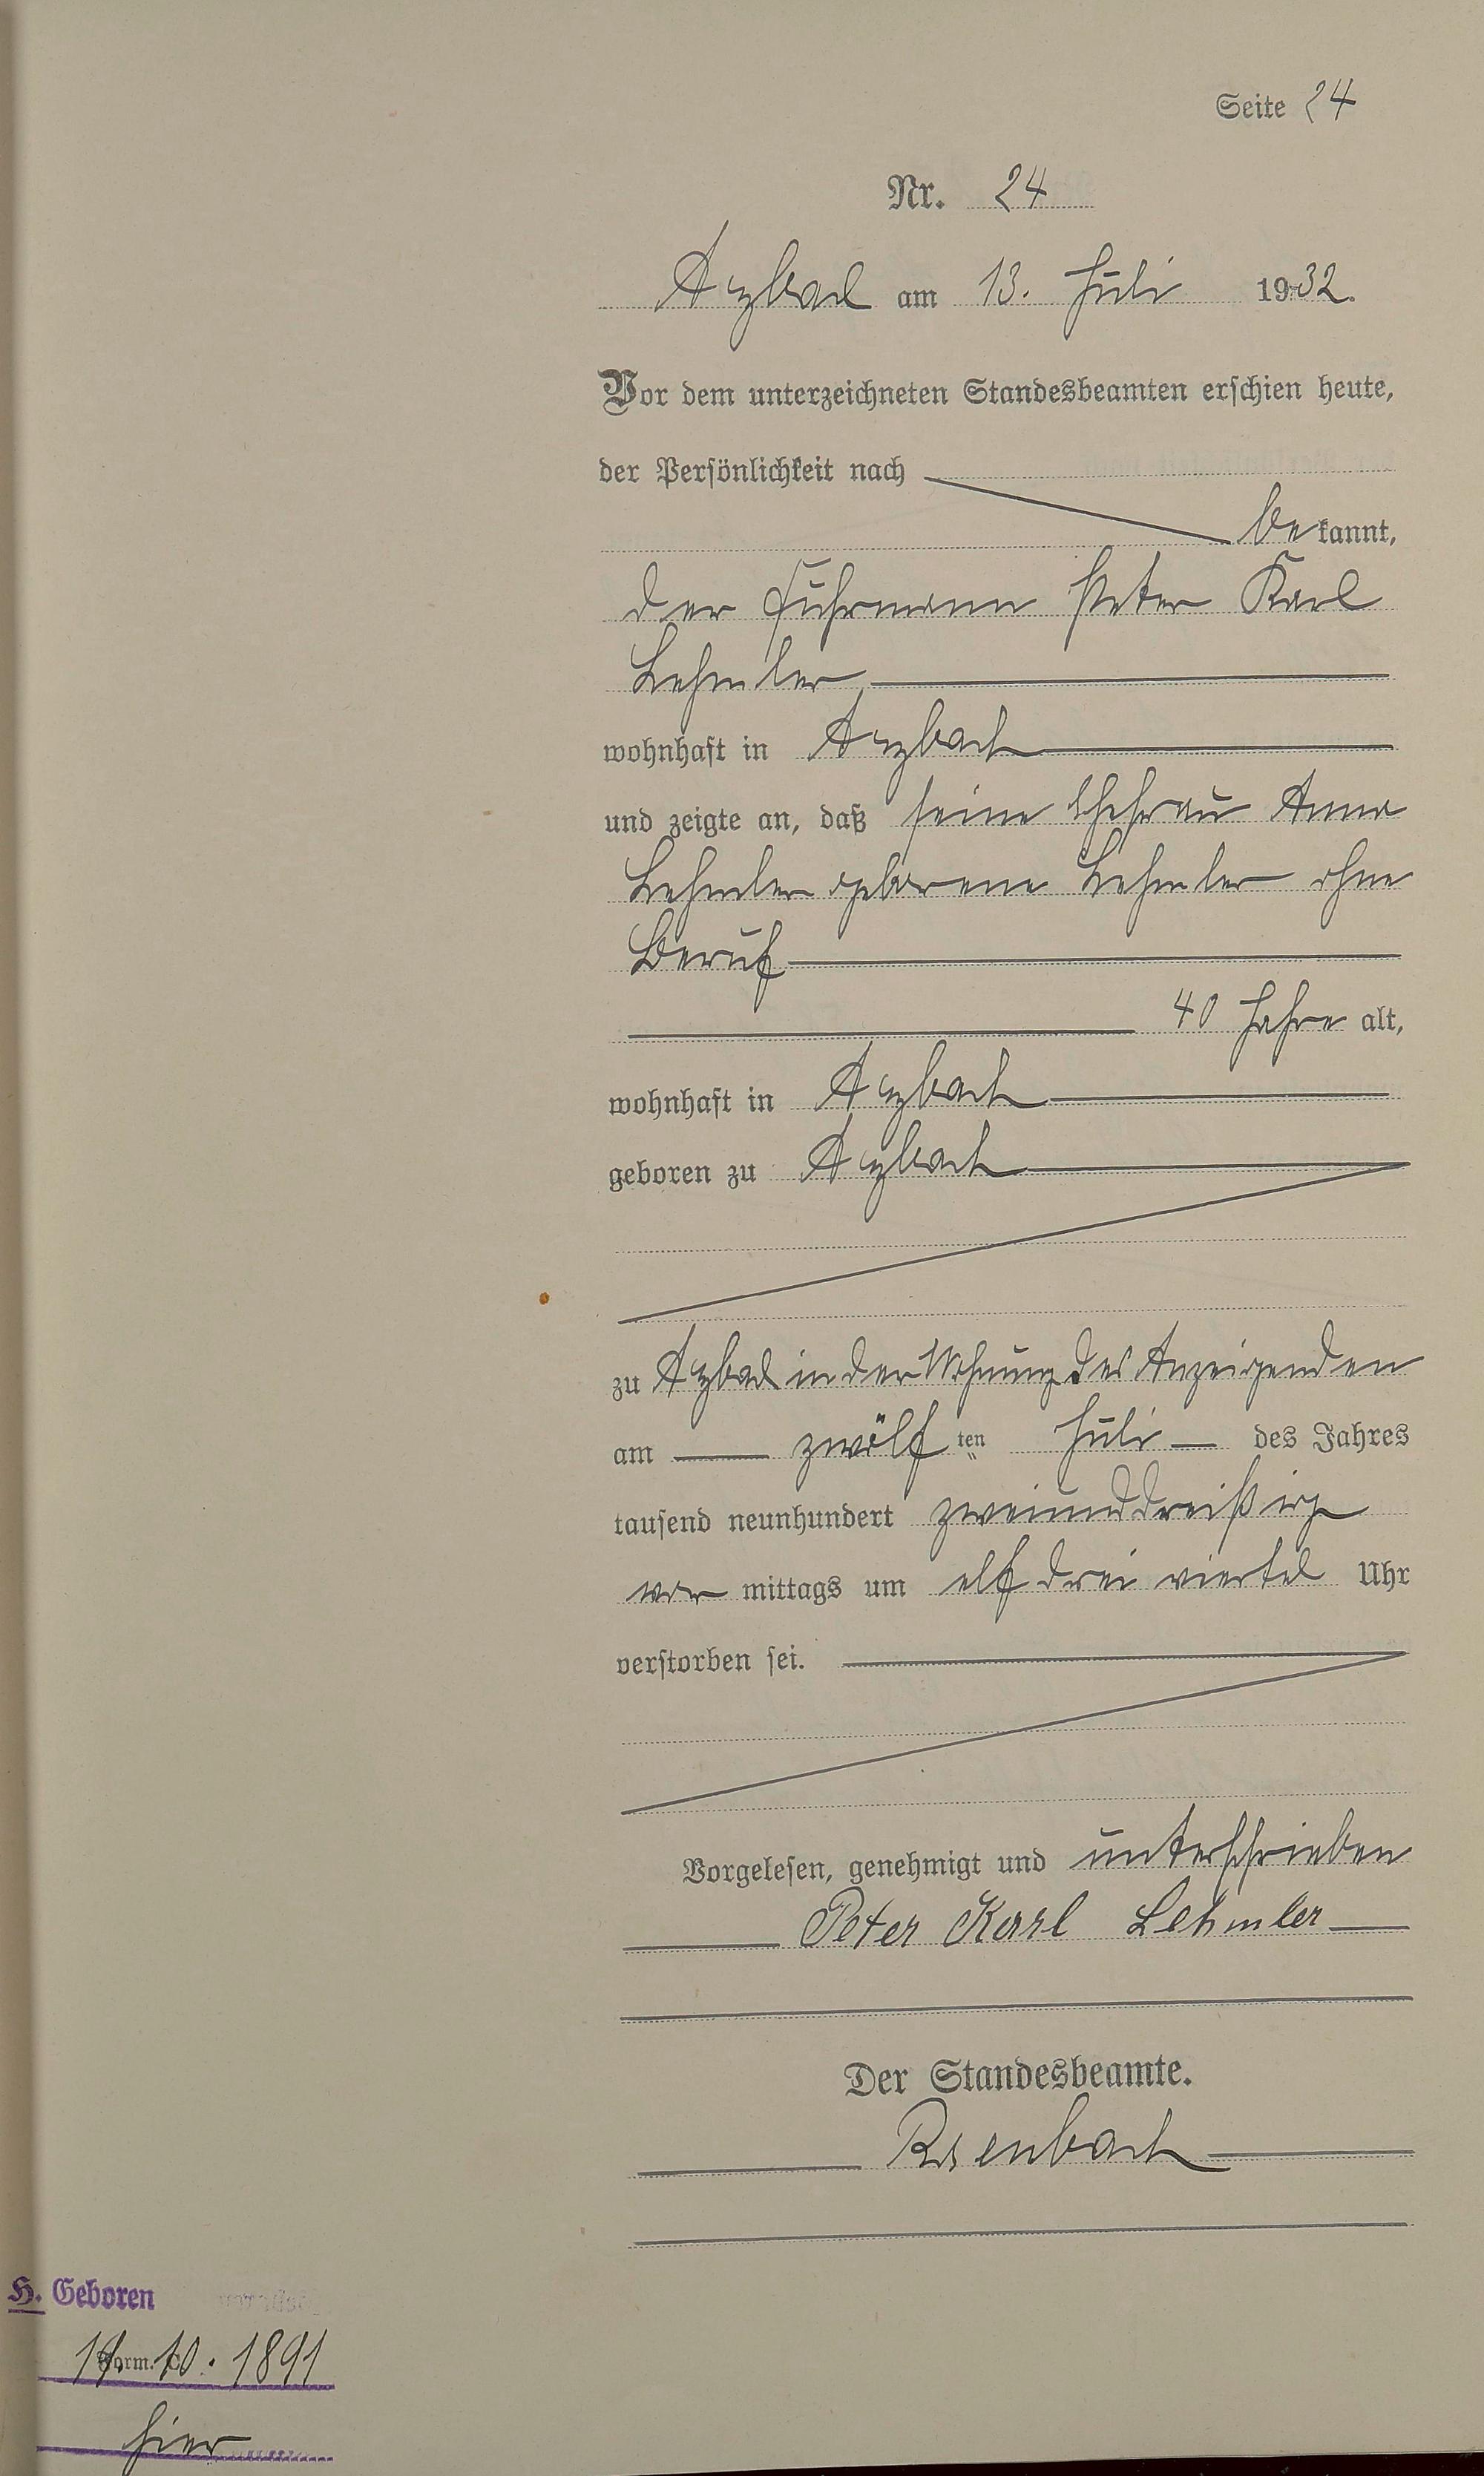 Seite 24
Nr. 24
Arzbach am 13. Juli 1932.
Vor dem unterzeichneten Standesbeamten erschien heute,
der Persönlichkeit nach
bekannt,
der Fuhrmann Peter Karl
Lehmler
wohnhaft in Arzbach
und zeigte an, daß seine Ehefrau Anna
Lehmler geborene Lehmler ohne
Beruf
40 Jahre alt,
wohnhaft in Arzbach
geboren zu Arzbach
zu Arzbach in der Wohnung des Anzeigenden
am zwölften Juli des Jahres
tausend neunhundert zweiunddreißig
vormittags um elf drei viertel Uhr
verstorben sei.
Vorgelesen, genehmigt und unterschrieben
Peter Karl Lehmler
Der Standesbeamte.
Rosenbach
H. Geboren
Form. C.
10. 1891
hier